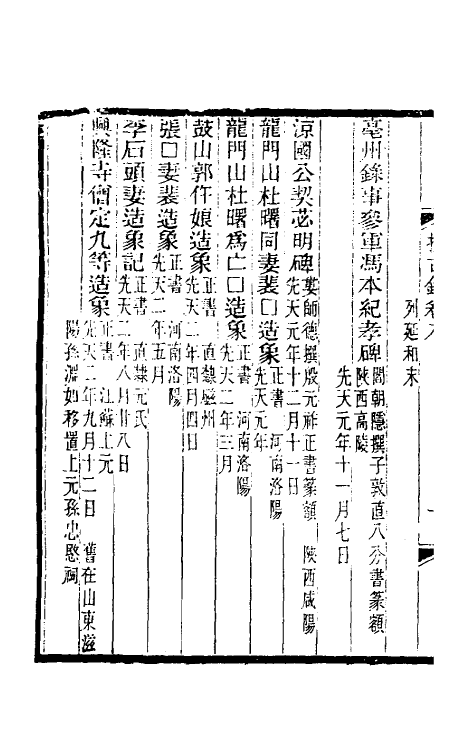 攈古錄卷八
列延和末
亳州錄事參軍馮本紀孝碑閻朝隱撰子敦直八分書篆額
陝西高陵
先天元年十一月七日
涼國公契苾明碑婁師德撰殷元祚正書篆額 陝西咸陽
先天元年十二月十一日
龍門山杜曙同妻裴口造象正書 河南洛陽
先天元年
龍門山杜曙爲亡口口造象正書 河南洛陽
先天二年三月
鼓山郭仵娘造象正書 直隸磁州
先天二年四月四日
張口妻裴造象正書 河南洛陽
先天二年五月
李石頭妻造象記正書 直隸元氏
先天二年八月廿八日
興隆寺僧定九等造象正書 江蘇上元
先天二年九月十二日 舊在山東滋
陽孫淵如移置上元孫忠愍祠